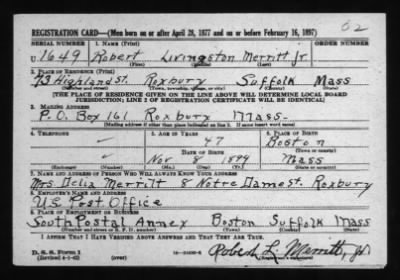 62
REGISTRATION CARD—(Men born on or after April 28, 1877 and on or before February 16, 1897)
SERIAL NUMBER 1. NAME (Print) ORDER NUMBER
U 1649 Robert Livingston Merritt Jr
(First) (Middle) (Last)
2. PLACE OF RESIDENCE (Print)
73 Highland St. Roxbury Suffolk Mass
(Number and street) (Town, township, village, or city) (County) (State)
[THE PLACE OF RESIDENCE GIVEN ON THE LINE ABOVE WILL DETERMINE LOCAL BOARD
JURISDICTION; LINE 2 OF REGISTRATION CERTIFICATE WILL BE IDENTICAL]
3. MAILING ADDRESS
P.O. Box 161 Roxbury Mass-
[Mailing address if other than place indicated on line 2. If same insert word same]
4. TELEPHONE 5. AGE IN YEARS 6. PLACE OF BIRTH
47 Boston
DATE OF BIRTH (Town or county)
Nov 8 1894 Mass
(Exchange) (Number) (Mo.) (Day) (Yr.) (State or country)
7. NAME AND ADDRESS OF PERSON WHO WILL ALWAYS KNOW YOUR ADDRESS
Mrs Delia Merritt 8 Notre Dame St. Roxbury
8. EMPLOYER'S NAME AND ADDRESS
U.S. Post Office
9. PLACE OF EMPLOYMENT OR BUSINESS
South Postal Annex Boston Suffolk Mass
(Number and street or R. F. D. number) (Town) (County) (State)
I AFFIRM THAT I HAVE VERIFIED ABOVE ANSWERS AND THAT THEY ARE TRUE.
D. S. S. Form 1
(Revised 4-1-42) (over) Robert L. Merritt, Jr.